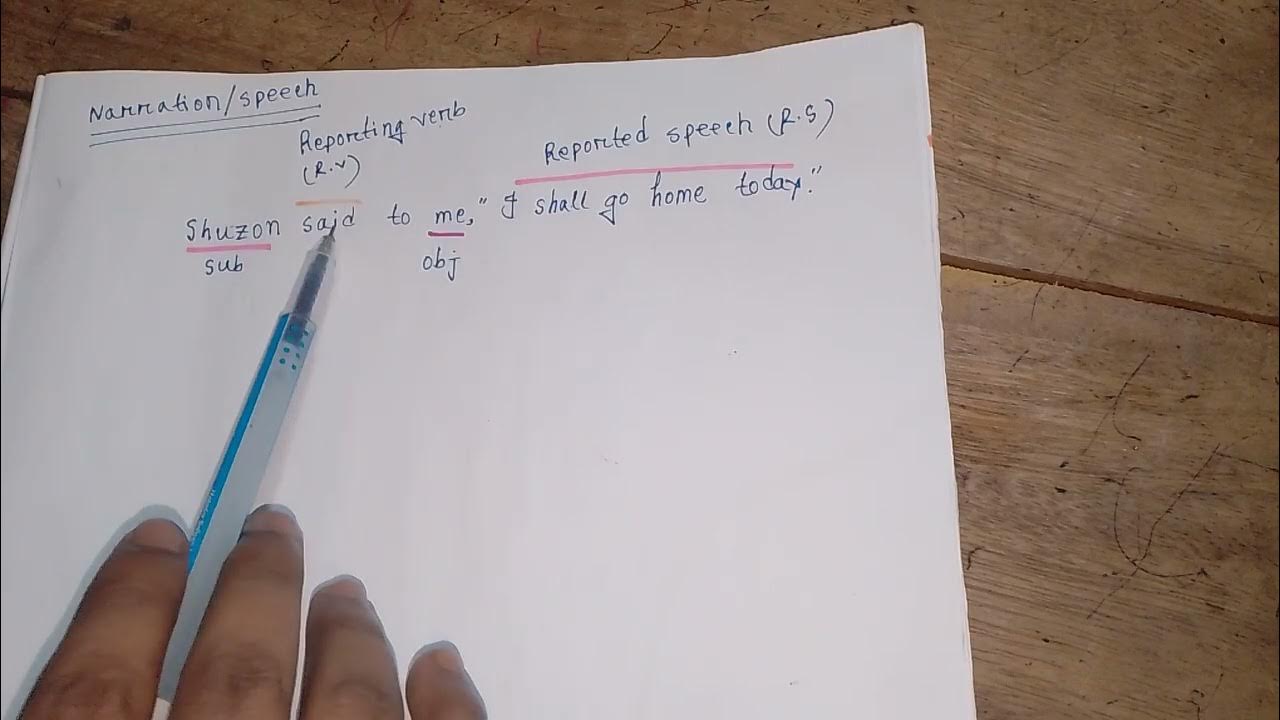 Narration/speech
Reporting verb
(R.V)
Reported speech (R.S)
Shuzon said to me, " I shall go home today."
sub
obj